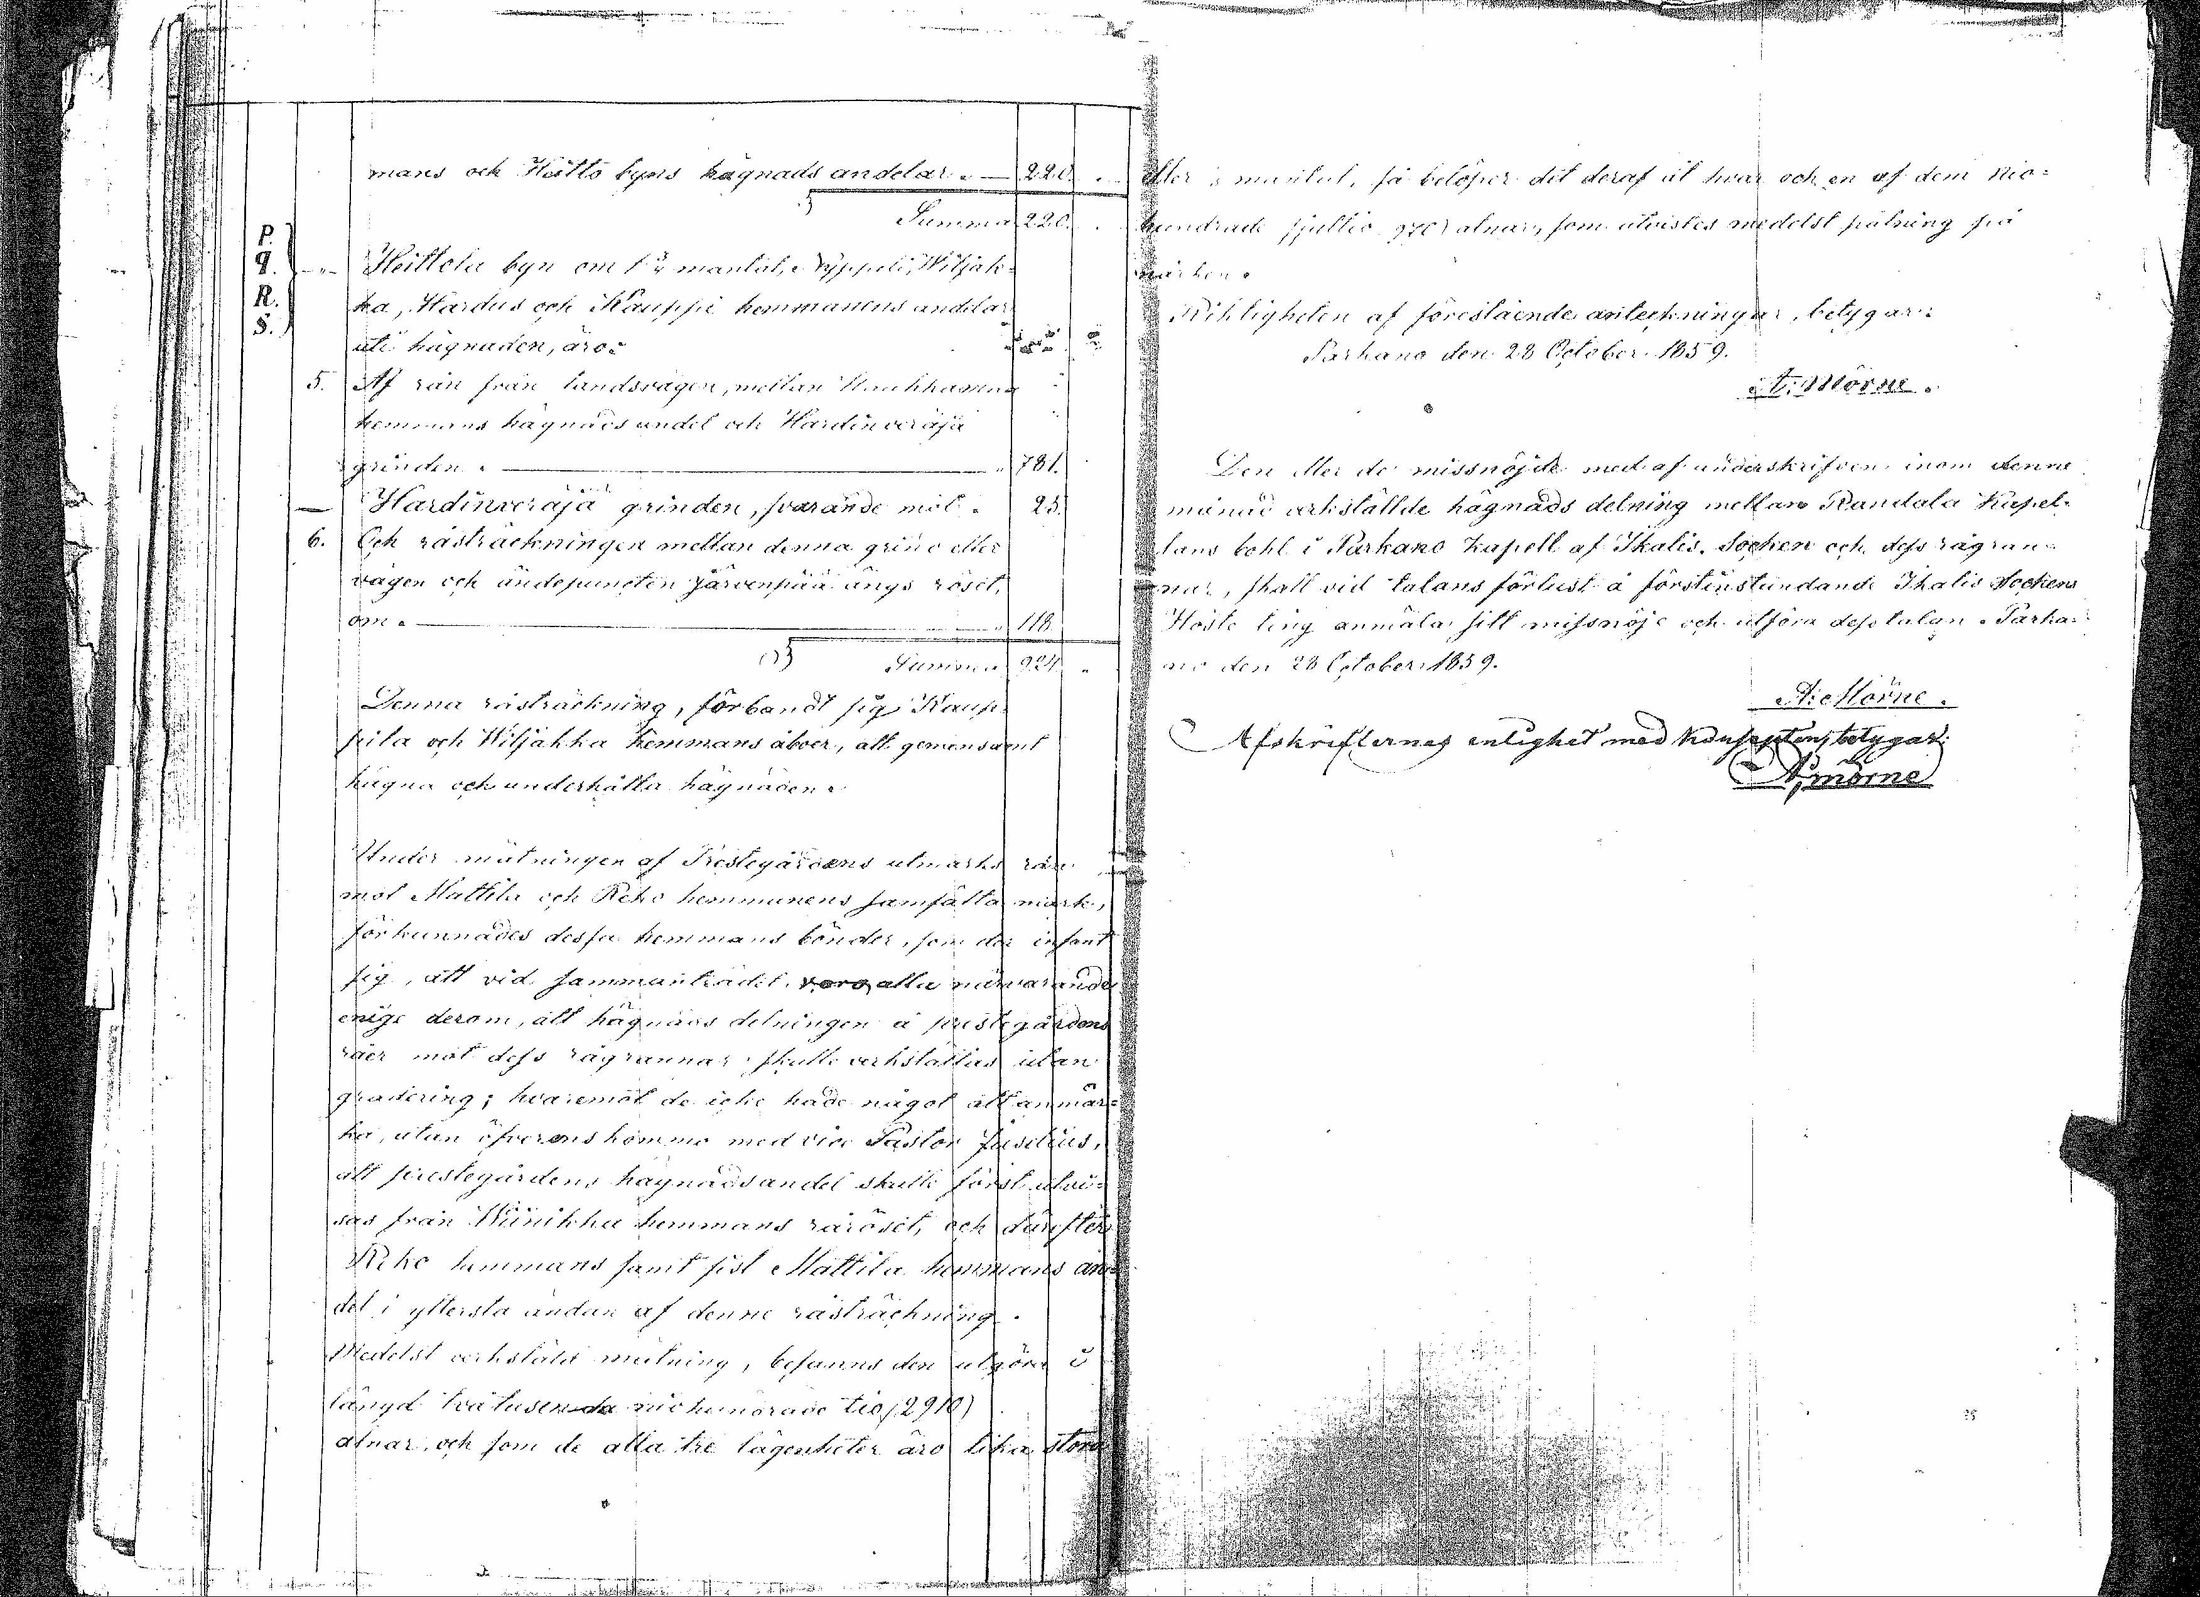 mans och Heitto byns hägnads andelar. — 220. "
Summa 220. "
P.
q.
R.
S.
" Heittola byn om mantal, Nyppeli, Wiljak-
ka, Hardus och Kauppi hemmanens andelar
uti hägnaden, äro:
5. Af rån från landsvägen, mellan
hemmans hägnads andel och Hardinveräjä
grinden. — " 781.
— Hardinveräjä grinden, svarande mot. 25.
6. Och råsträckningen mellan denna grind eller
vägen och ändepuncten Järvenpää ängs röset,
om. — " 118.
Summa 924. "
Denna råsträckning, förbandt sig Kaup-
pila och Wiljakka hemmans åboer, att gemensamt
hägna och underhålla hägnaden.
Under mätningen af Prestegårdens utmarks rån
mot Mattila och Reko hemmanens samfälta mark,
förkunnades dessa hemmans bönder, som der infant
sig, att vid sammanträdet, voro alla närvarande
enige derom, att hägnads delningen å prestegårdens
råer mot dess rågrannar skulle verkställas utan
gradering; hvaremot de icke hade något att anmär-
ka, utan öfverenskommo med vice Pastor Juselius,
att prestegårdens hägnadsandel skulle först utvi-
sas från Wiinikka hemmans råröset, och därefter
Reko hemmans samt sist Mattila hemmans an-
del i yttersta ändan af denne råsträckning.
Medelst verkstäld mätning, befanns den utgöra i
längd tvåtusenda niohundrade tio (2910)
alnar, och som de alla tre lägenheter äro lika stora
eller mantal, så belöper det deraf åt hvar och en af dem nio-
hundrade sjuttio 970) alnar, som utvistes medelst pålning på
marken.
Riktigheten af förestående anteckningar, betygar:
Parkano den 28 October 1859.
A. Mörne.
Den eller de missnöjde med af underskrifven inom denne
månad verkställde hägnads delning mellan Randala Kapel-
lans bohl i Parkano Kapell af Ikalis Socken och dess rågran-
nar, skall vid talans förlust å förstinstundande Ikalis Sockens
Höste ting anmäla sitt missnöje och utföra dess talan. Parka-
no den 28 October 1859.
A. Mörne.
Afskrifternas enlighet med konsepten, betygar:
A. Mörne